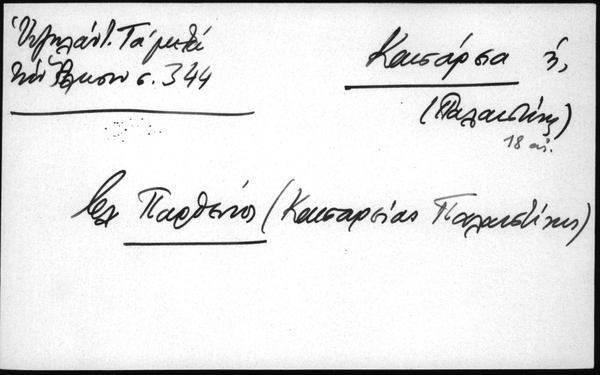 Ὑψηλάντ. Τὰ μετὰ
τὴν Ἅλωσιν σ. 344
Καισάρεια ἡ,
(Παλαιστίνης)
18 αἰ.
βλ Παρθένιος (Καισαρείας Παλαιστίνης)